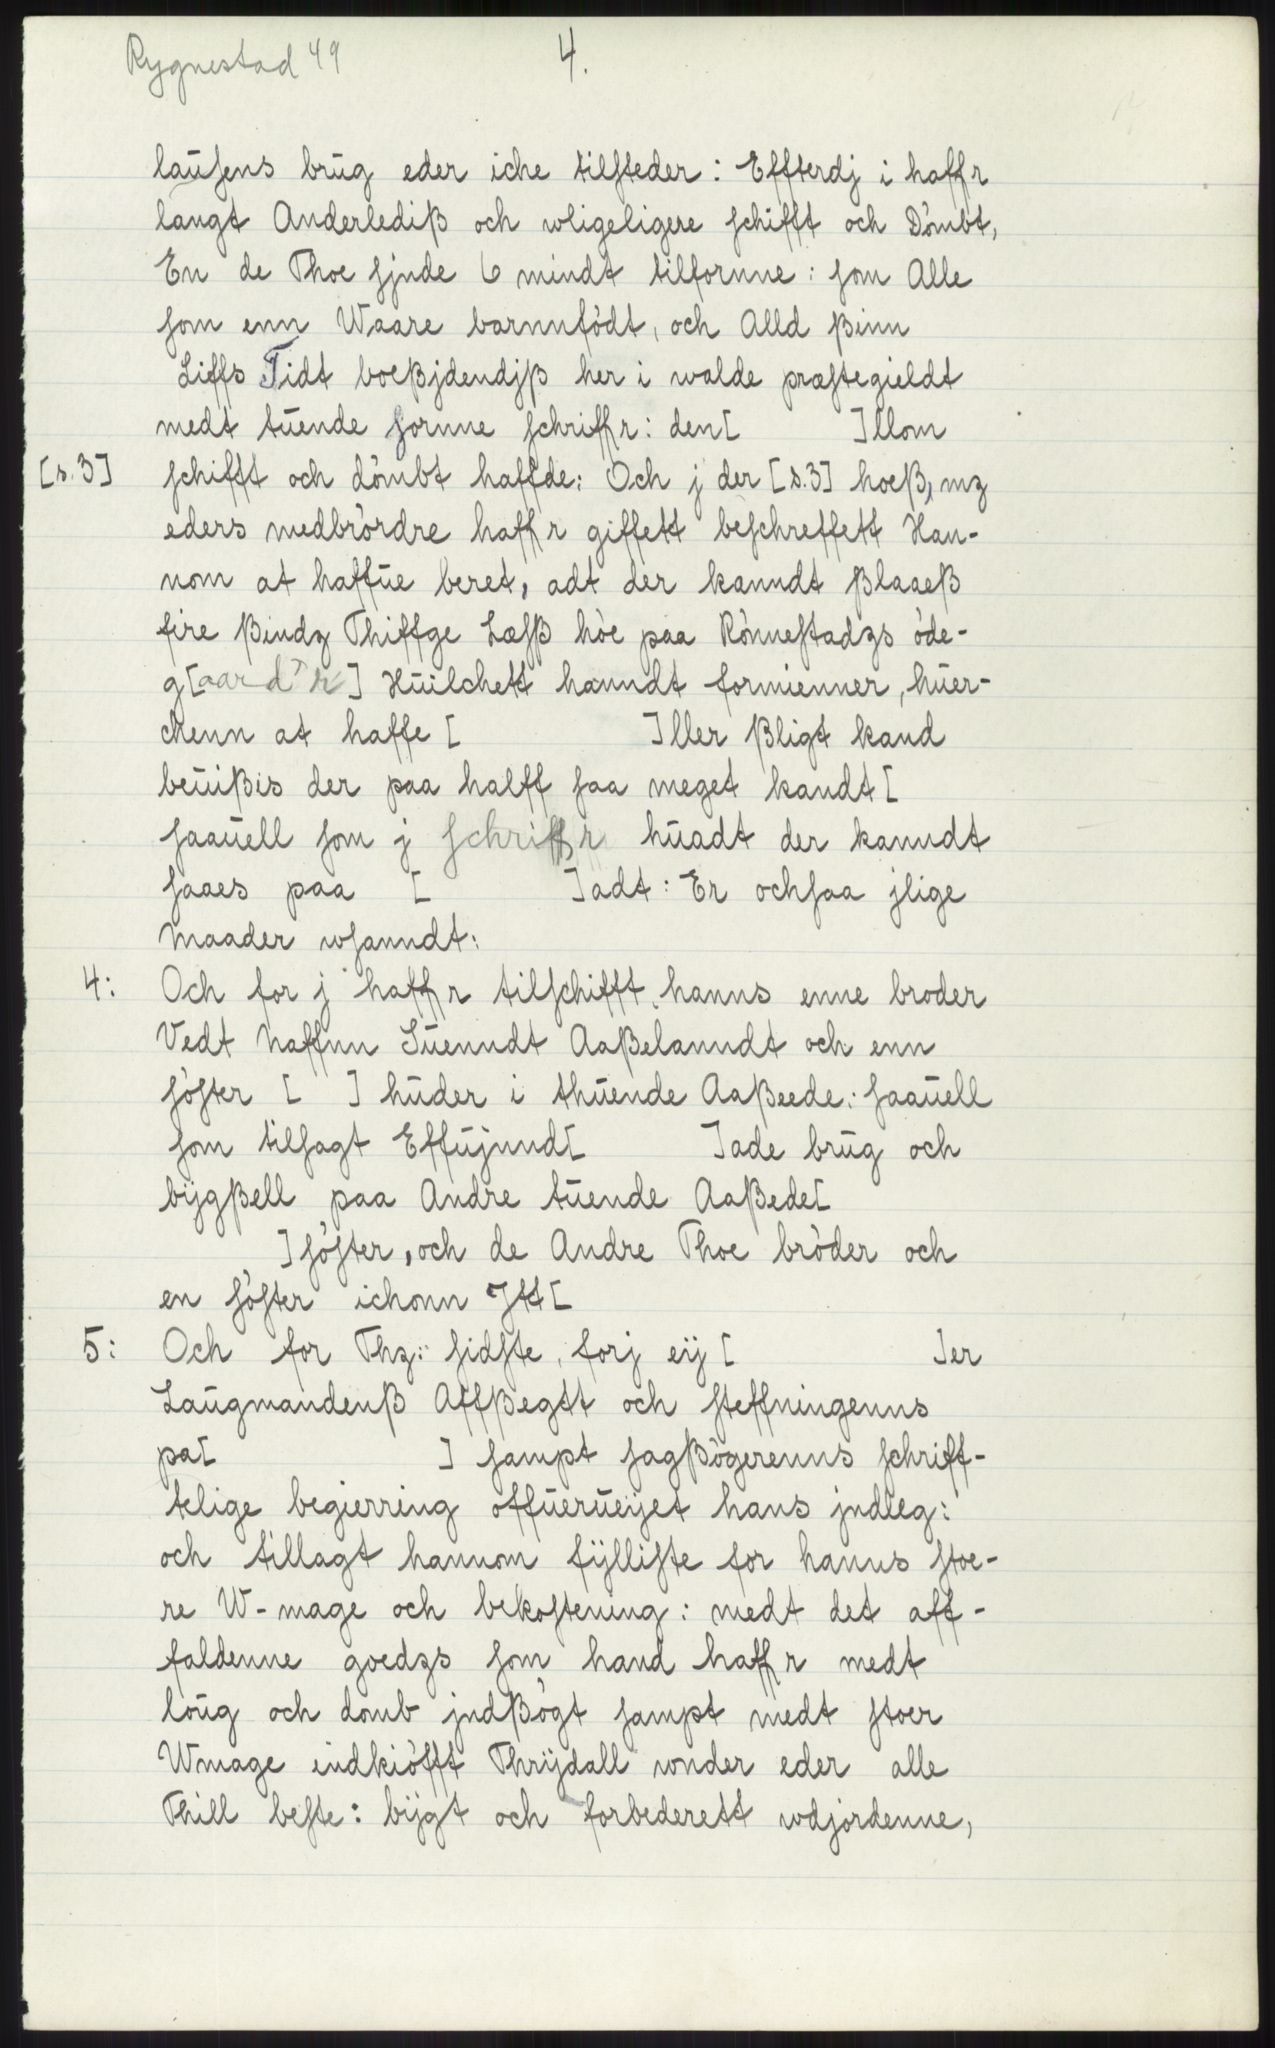 Rygnestad 49
4.
laŭsens brŭg eder iche tilsteder: Effterdj i haffr
langt Anderlediß och wligeligere schifft och Dömbt,
En de Thoe sjnde 6 mindt tilfornne: som Alle
som enn Waare barnnfödt, och Alld ßinn
Liffs Tidt boeßjdendjß her i walde præstegieldt
medt tŭende fornne schriffr: den[ ]llom
[s.3] schifft och dömbt haffde: Och j der [s.3] hoeß, mz
eders medbrördre haffr giffett beschreffett Han-
nom at haffŭe beret, adt der kanndt ßlaaeß
fire ßindz Thiffge Læsß höe paa Rönnestadzs öde-
g[aard'r] Hŭilchett hanndt formienner, hŭer-
chenn at haffe [ ]ller ßligt kand
beŭißis der paa halff saa meget kandt[
saaŭell som j schriffr hŭadt der kanndt
saaes paa [ ]adt: Er ochsaa jlige
Maader wsanndt:
4: Och for j haffr tilschifft hanns enne broder
Vedt Naffnn Sŭenndt Aaßelanndt och enn
söster [ ] hŭder i thŭende Aaßeede: saaŭell
som tilsagt Effŭjnnd[ ]ade brŭg och
bijgßell paa Andre tŭende Aaßede[
]söster, och de Andre Thoe bröder och
en söster ichonn Jtt[
5: Och for Thz: sidste, forj eij [ ]er
Laŭgmandenß Affßegtt och steffningenns
pa[ ] sampt sagßögerenns schriff-
telige begierring offŭerŭeijet hans jndleg:
och tillagt hannom fÿlliste for hanns stoe-
re W-mage och bekostening: medt det aff-
faldenne goedzs som hand haffr medt
loŭg och domb jndßögt sampt medt stoer
Wmage indkiöfft Thrijdall vonder eder alle
Thill beste: bijgt och forbederett wdjordenne,